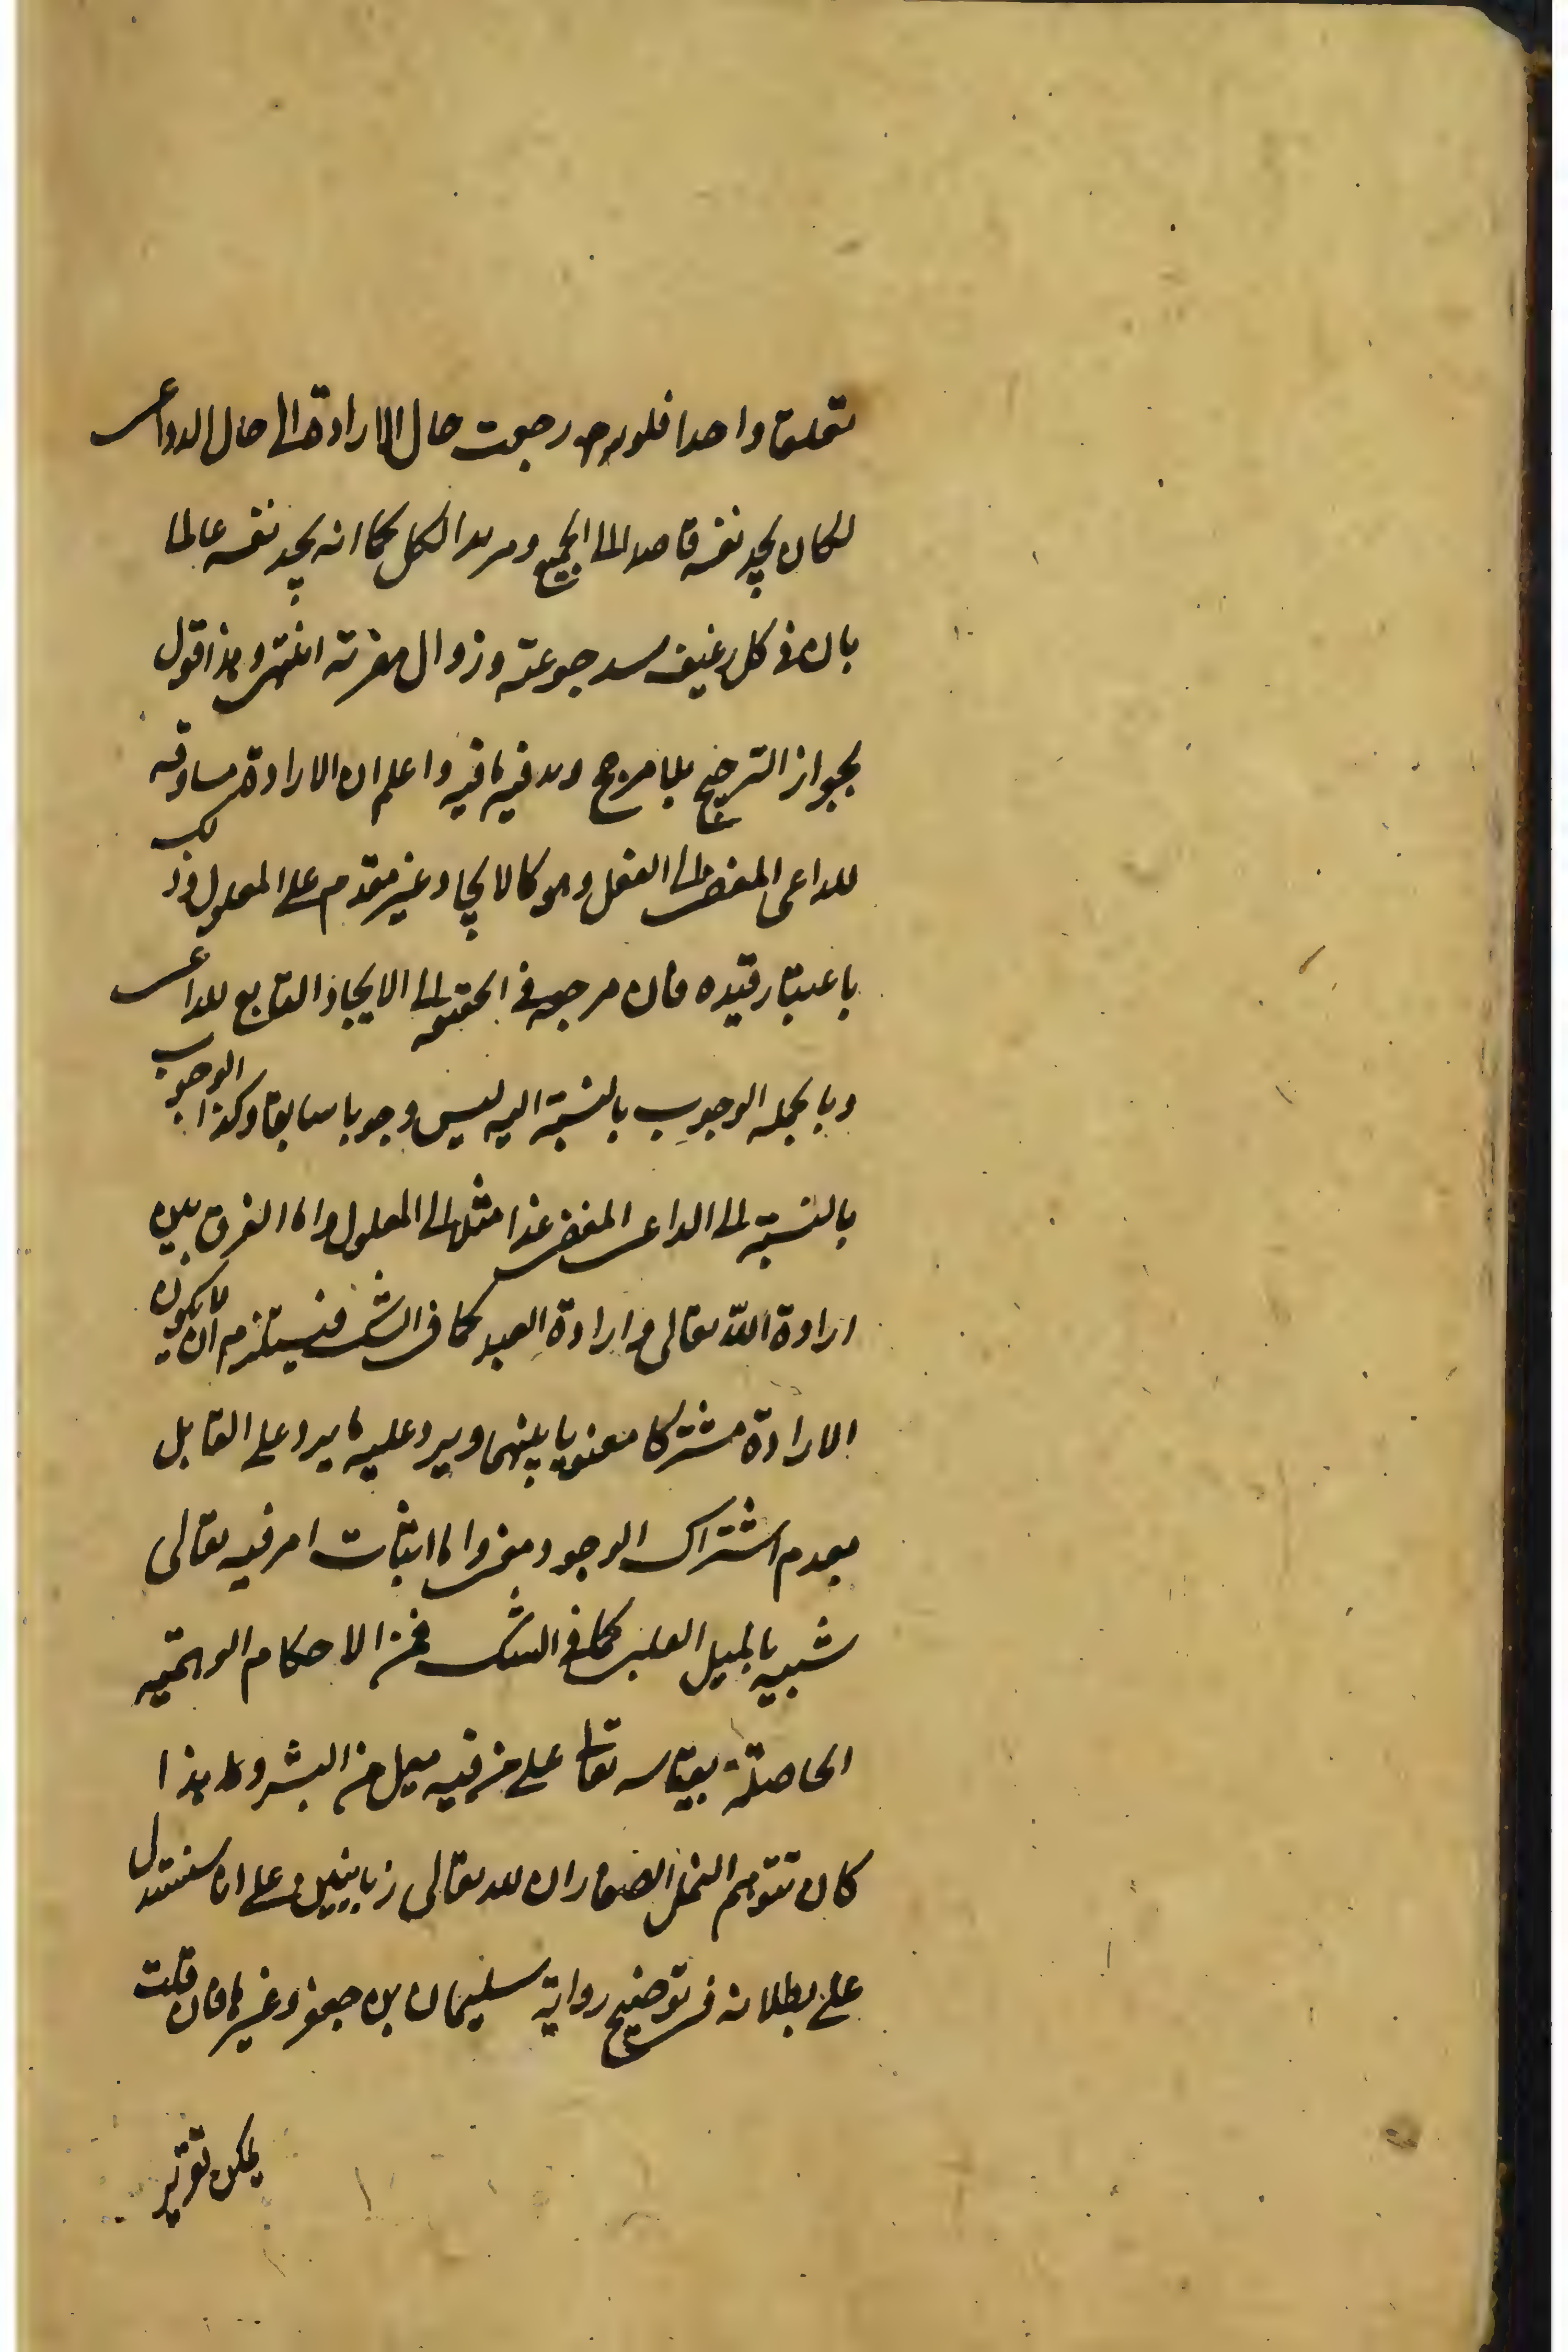 تعلقا واحدا فلو رجعت حال الارادة الى حال الدواعى
لكان يجد نفسه قاصدا الى الجميع ومريدا لكل كما انه يجد نفسه عالما
بان فى كل رغيف سد جوعته وزوال مضرته انتهى وهذا قول
بجواز الترجيح بلا مرجح وفيه ما فيه واعلم ان الارادة مساوقة
للداعى المفضى الى الفعل وهو كالايجاد غير مقدم على المعلول وذلك
باعتبار قيده فان مرجعه فى الحقيقة الى الايجاد التابع للداعى
وبالجملة الوجوب بالنسبة اليه ليس وجوبا سابقا وكذا الوجوب
بالنسبة الى الداعى المفضى عندا مثله الى المعلول واما الفرق بين
ارادة الله تعالى وارادة العبد كما فى الش فيستلزم ان لا يكون
الارادة مشتركا معنويا بينهما ويرد عليه ما يرد على القايل
بعدم اشتراك الوجود معنى واما اثبات امر فيه تعالى
شبيه بالميل القلبى كما فى الش فمن الاحكام الوهمية
الحاصلة بقياسه تعالى على من فيه ميل من البشر وما هذا
كان تتوهم النمل الصغار ان لله تعالى زبانيين وعلى انا سنستدل
على بطلانه فى توضيح رواية سليمان بن جعفر وغيرها فان قلت
يمكن تقرير